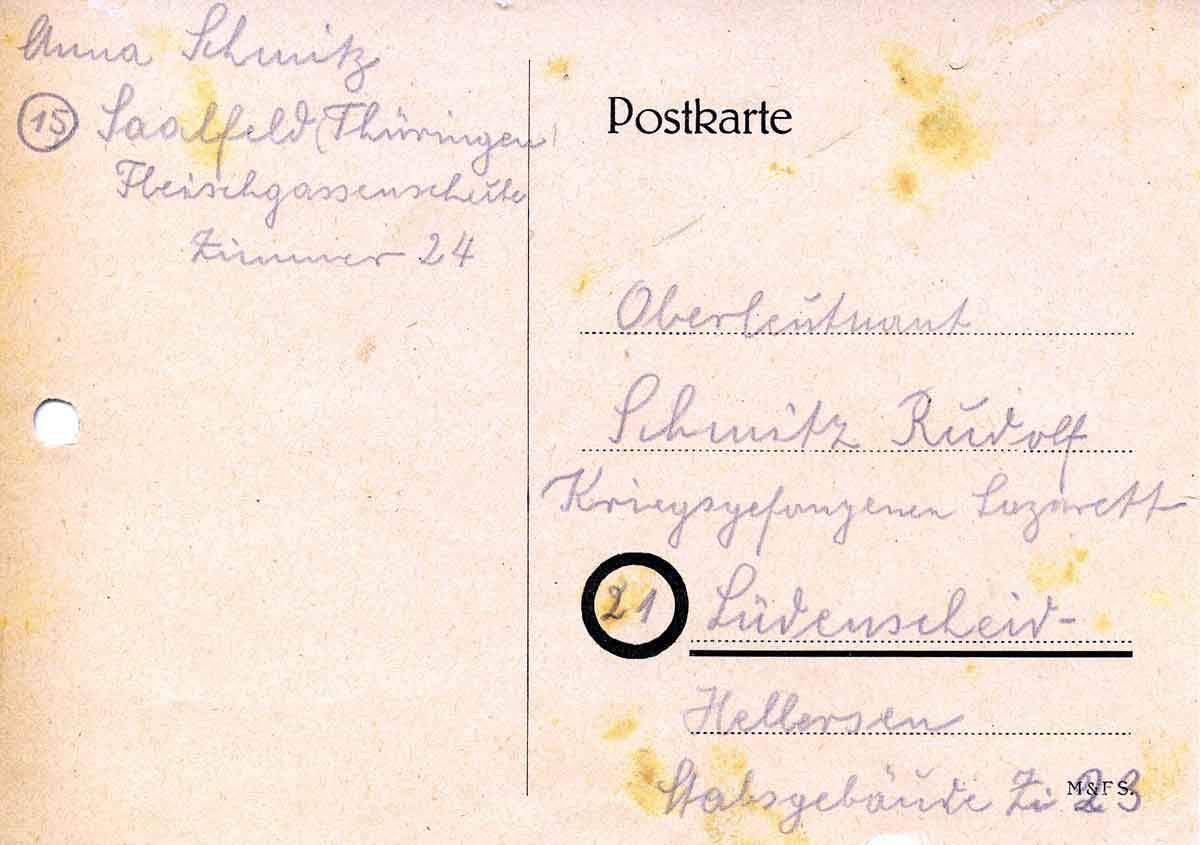 Anna Schmitz
15 Saalfeld (Thüringen)
Zimmer 24
Postkarte
Oberleutnant
Schmitz Rudolf
Kriegsgefangenen Lazarett
21 Lüdenscheid-
Hellersen
Stabsgebäude Zi 23
M&FS.